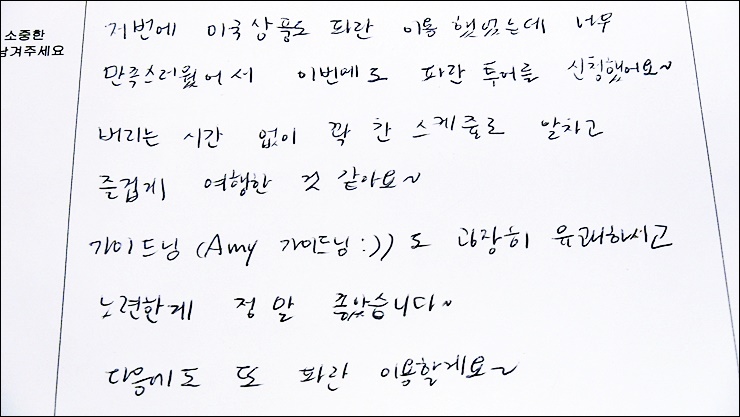 소중한
남겨주세요
저번에 미국상품도 파란 이용했었는데 너무
만족스러웠어서 이번에도 파란투어를 신청했어요~
버리는 시간 없이 꽉 찬 스케줄로 알차고
즐겁게 여행한 것 같아요~
가이드님 (Amy 가이드님:)) 도 굉장히 유쾌하시고
노련한게 정말 좋았습니다~
다음에도 또 파란 이용할게요~